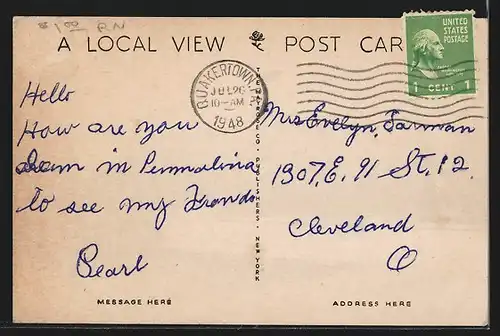 $1.00 RN
A LOCAL VIEW POST CAR
UNITED
STATES
POSTAGE
1 CENT 1
QUAKERTOWN
JUL 26
10-AM
1948
Hello
How are you
in
to see my
Pearl
Mrs Evelyn, Jarman
1307, E. 91 St, 12.
Cleveland
O
PUBLISHERS · NEW YORK
MESSAGE HERE
ADDRESS HERE